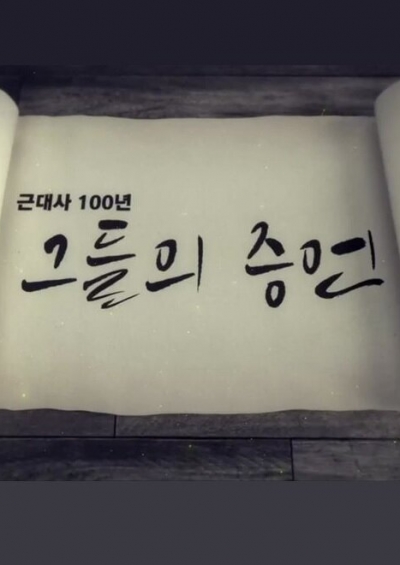 근대사 100년
그들의 증언